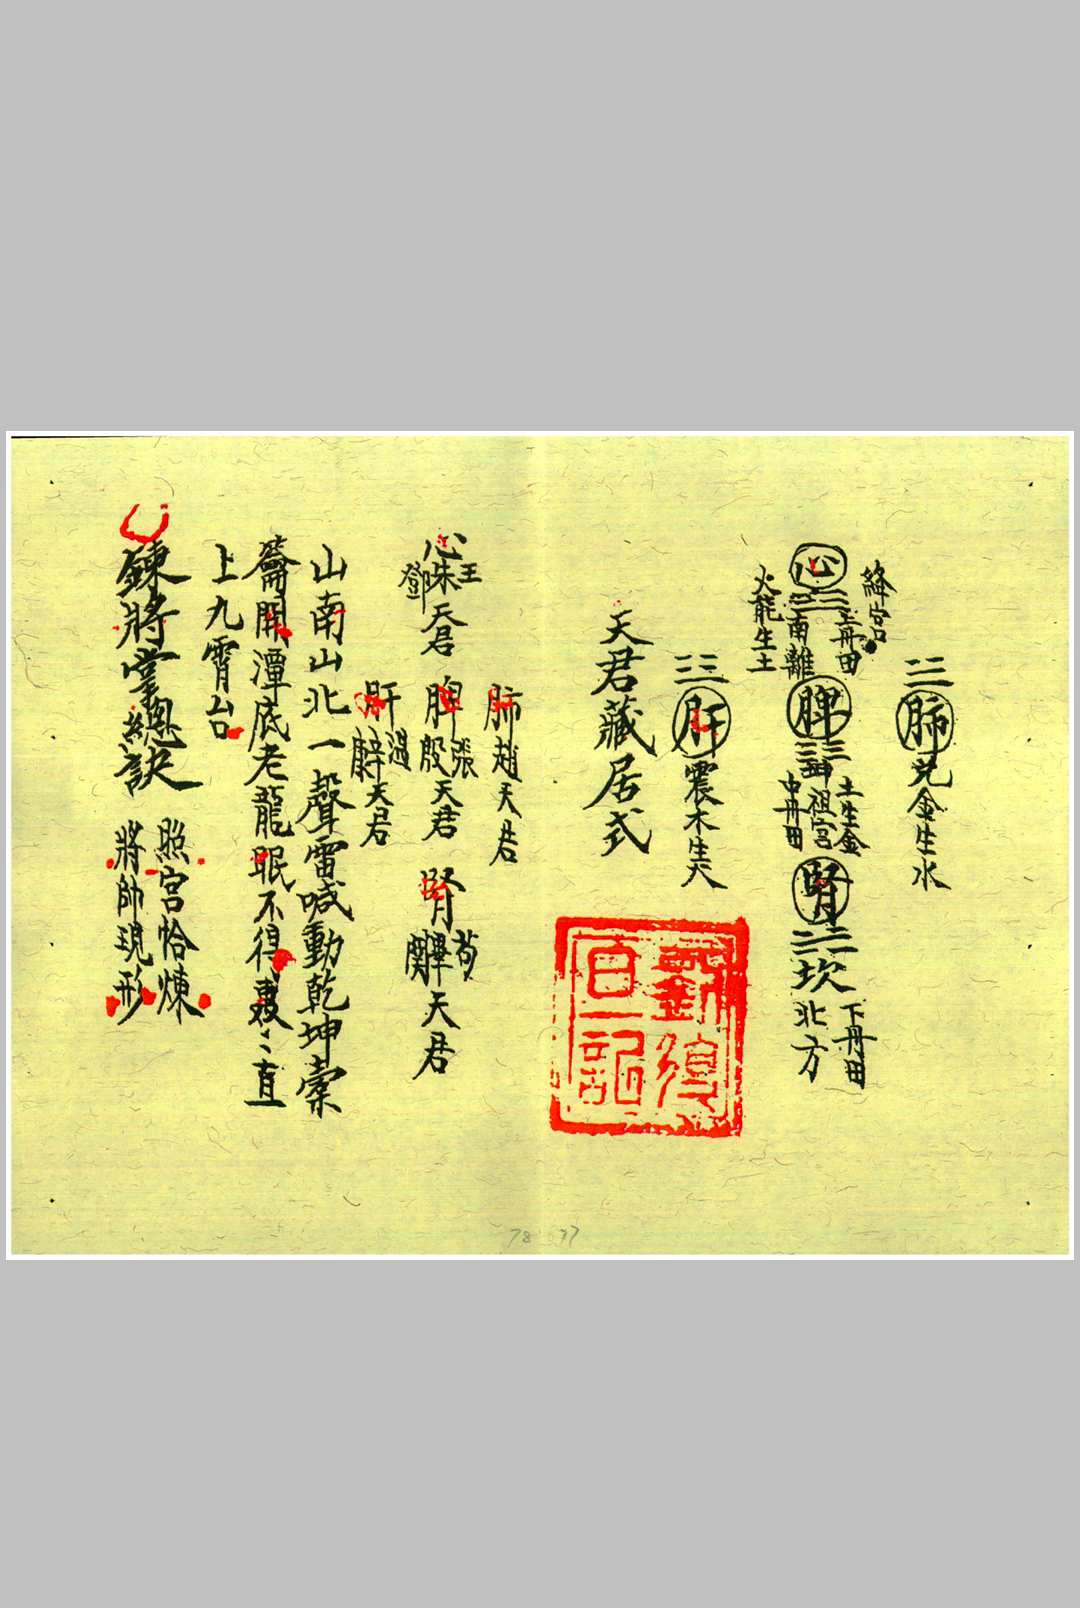 肺 兌金生水
絳宮
心 上丹田
南離
火能生土
脾 坤祖宮
土生金
中丹田
腎 坎北方
下丹田
肝 震木生火
天君藏居式
劉復
官記
肺 趙天君
心 王朱鄧天君
脾 張殷天君
腎 苟畢關天君
肝 辛天君
山南山北一聲雷喊動乾坤橐
籥開潭底老龍眠不得 直
上九霄台
鍊將掌總訣
照宮恰煉
將帥現形
78 77